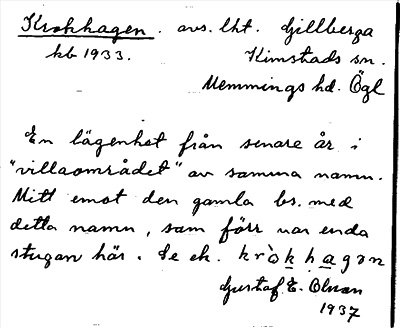 Krokhagen. avs. lht. Gillberga
kb 1933. Kimstads sn.
Memmings hd. Ögl
En lägenhet från senare år i
"villaområdet" av samma namn.
Mitt emot den gamla bs. med
detta namn, som förr var enda
stugan här. Se ek. krò̀khagən
Gustaf E. Olsson
1937